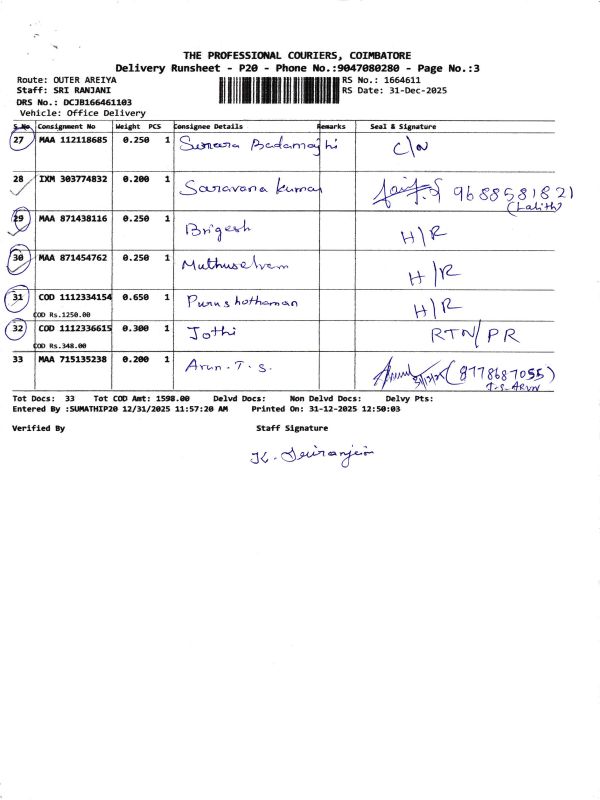 THE PROFESSIONAL COURIERS, COIMBATORE
Delivery Runsheet - P20 - Phone No.:9047080280 - Page No.:3
Route: OUTER AREIYA RS No.: 1664611
Staff: SRI RANJANI RS Date: 31-Dec-2025
DRS No.: DCJB166461103
Vehicle: Office Delivery
S No. Consignment No Weight PCS Consignee Details Remarks Seal & Signature
27 MAA 112118685 0.250 1 Sunara Badamajhi C/N
28 IXM 303774832 0.200 1 Saravana Kumar 9688581821
(Lalith)
29 MAA 871438116 0.250 1 Brigesh H/R
30 MAA 871454762 0.250 1 Muthuselvam H/R
31 COD 1112334154 0.650 1 Purushothaman H/R
COD Rs.1250.00
32 COD 1112336615 0.300 1 Jothi RTN/PR
COD Rs.348.00
33 MAA 715135238 0.200 1 Arun.T.S. (8778687055)
T.S. ARUN
Tot Docs: 33 Tot COD Amt: 1598.00 Delvd Docs: Non Delvd Docs: Delvy Pts:
Entered By :SUMATHIP20 12/31/2025 11:57:20 AM Printed On: 31-12-2025 12:50:03
Verified By Staff Signature